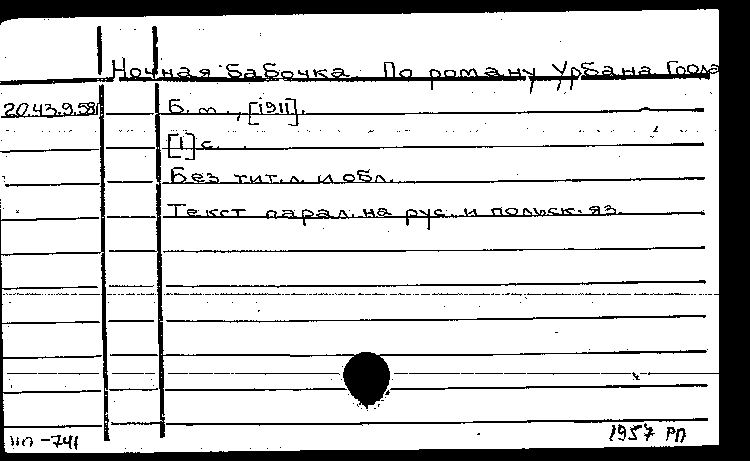 Ночная бабочка. По роману Урбана Гооля
20.43.9.58
Б. т., [1911].
[1] с.
Без тит. л. и обл.
Текст парал. на рус. и польск. яз.
НП-741 1957 РП